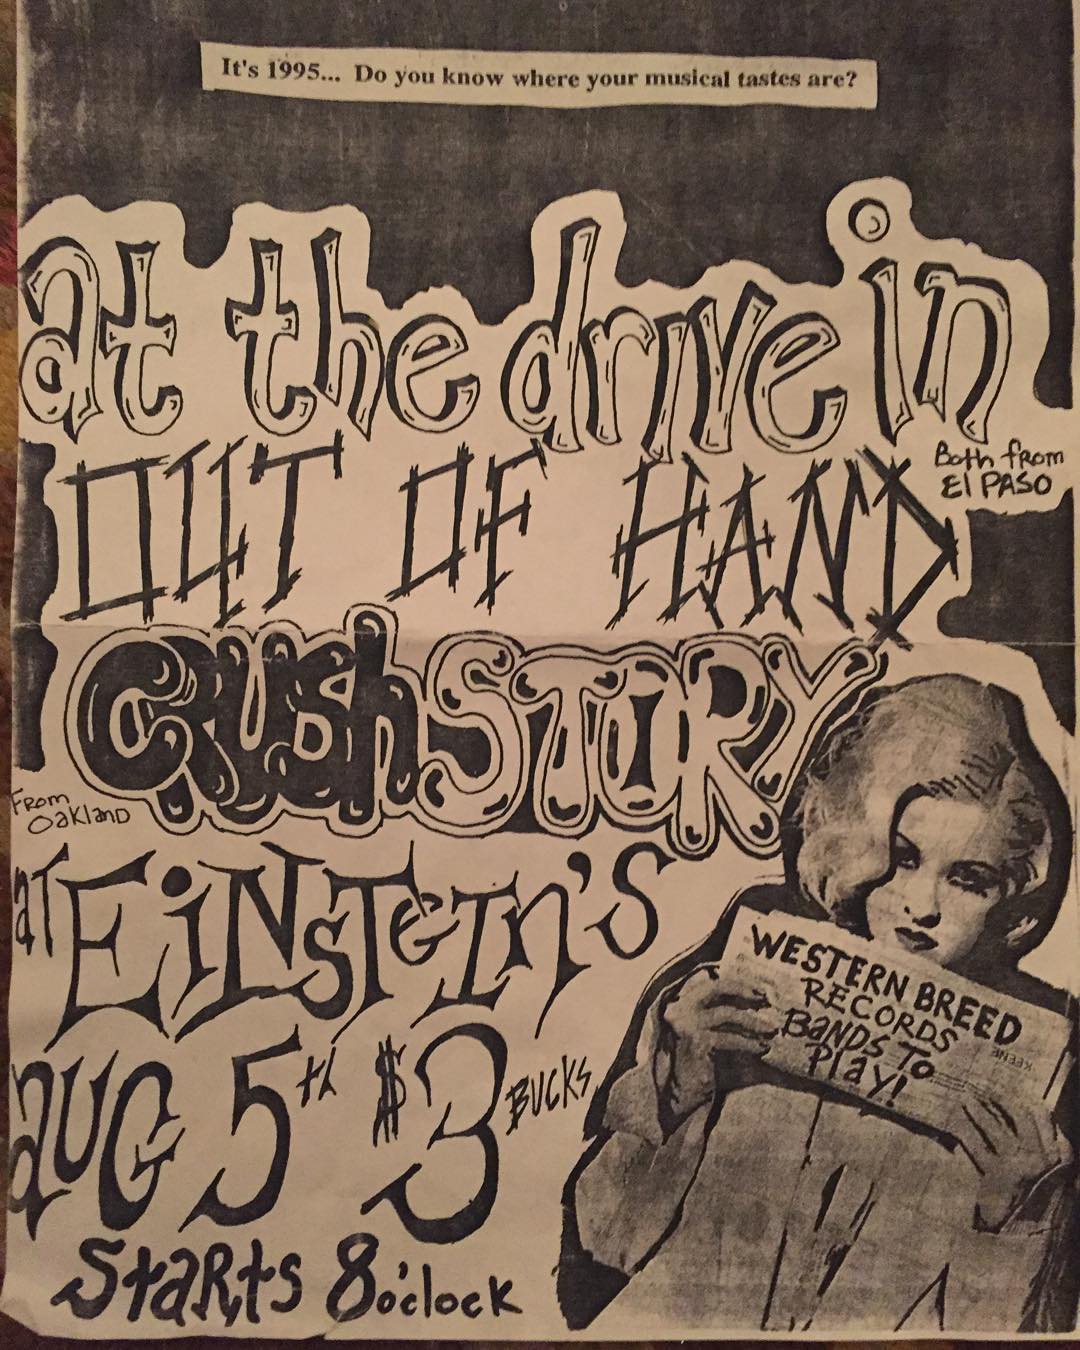 It's 1995... Do you know where your musical tastes are?
at the drive in
OUT OF HAND
Both from
El PASO
CRUSh STORY
From
Oakland
aT EiNsTeIn's
aUG 5th $3 BUCKS
WESTERN BREED
RECORDS
BaNDS To
Play!
StaRts 8 o'clock